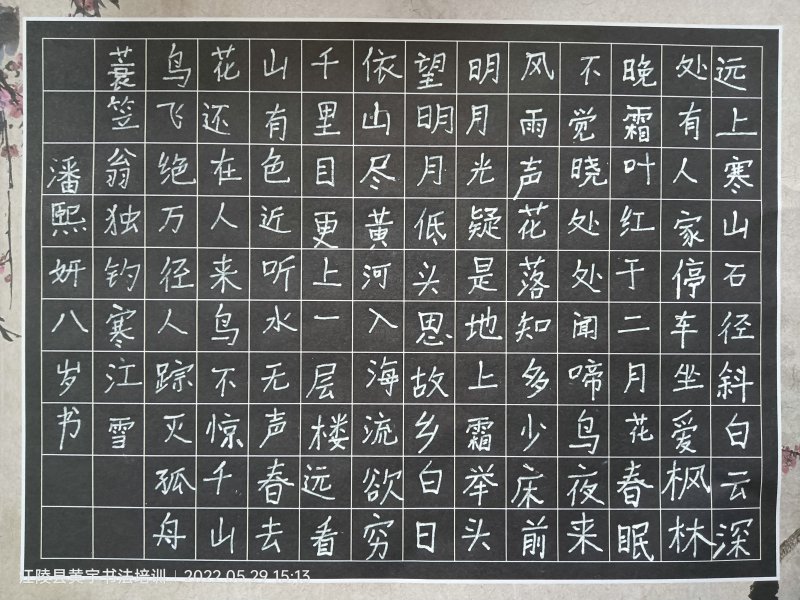 远上寒山石径斜白云深
处有人家停车坐爱枫林
晚霜叶红于二月花春眠
不觉晓处处闻啼鸟夜来
风雨声花落知多少床前
明月光疑是地上霜举头
望明月低头思故乡白日
依山尽黄河入海流欲穷
千里目更上一层楼远看
山有色近听水无声春去
花还在人来鸟不惊千山
鸟飞绝万径人踪灭孤舟
蓑笠翁独钓寒江雪
潘熙妍八岁书
江陵县黄宇书法培训 | 2022.05.29 15:13